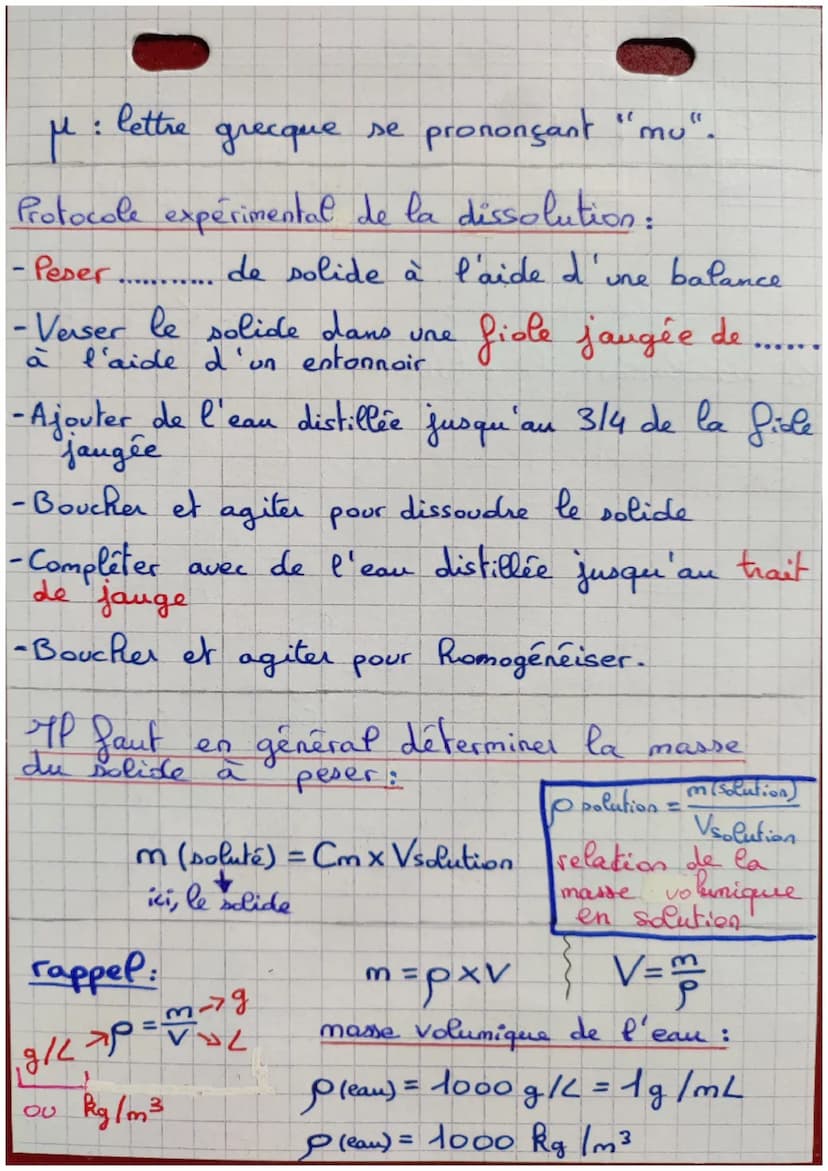 μ : lettre grecque se prononçant "mu".
Protocole expérimental de la dissolution :
- Peser ........... de solide à l'aide d'une balance
- Verser le solide dans une fiole jaugée de ......
à l'aide d'un entonnoir
- Ajouter de l'eau distillée jusqu'au 3/4 de la fiole
jaugée
- Boucher et agiter pour dissoudre le solide
- Compléter avec de l'eau distillée jusqu'au trait
de jauge
- Boucher et agiter pour homogénéiser.
Il faut en général déterminer la masse
du solide à peser :
ρ solution = m(solution) / Vsolution
relation de la
masse volumique
en solution
m (soluté) = Cm x Vsolution
ici, le solide
rappel :
g/L → ρ = m/V → g → L
ou kg/m³
m = ρ x V
V = m/ρ
masse volumique de l'eau :
ρ(eau) = 1000 g/L = 1g/mL
ρ(eau) = 1000 kg/m³